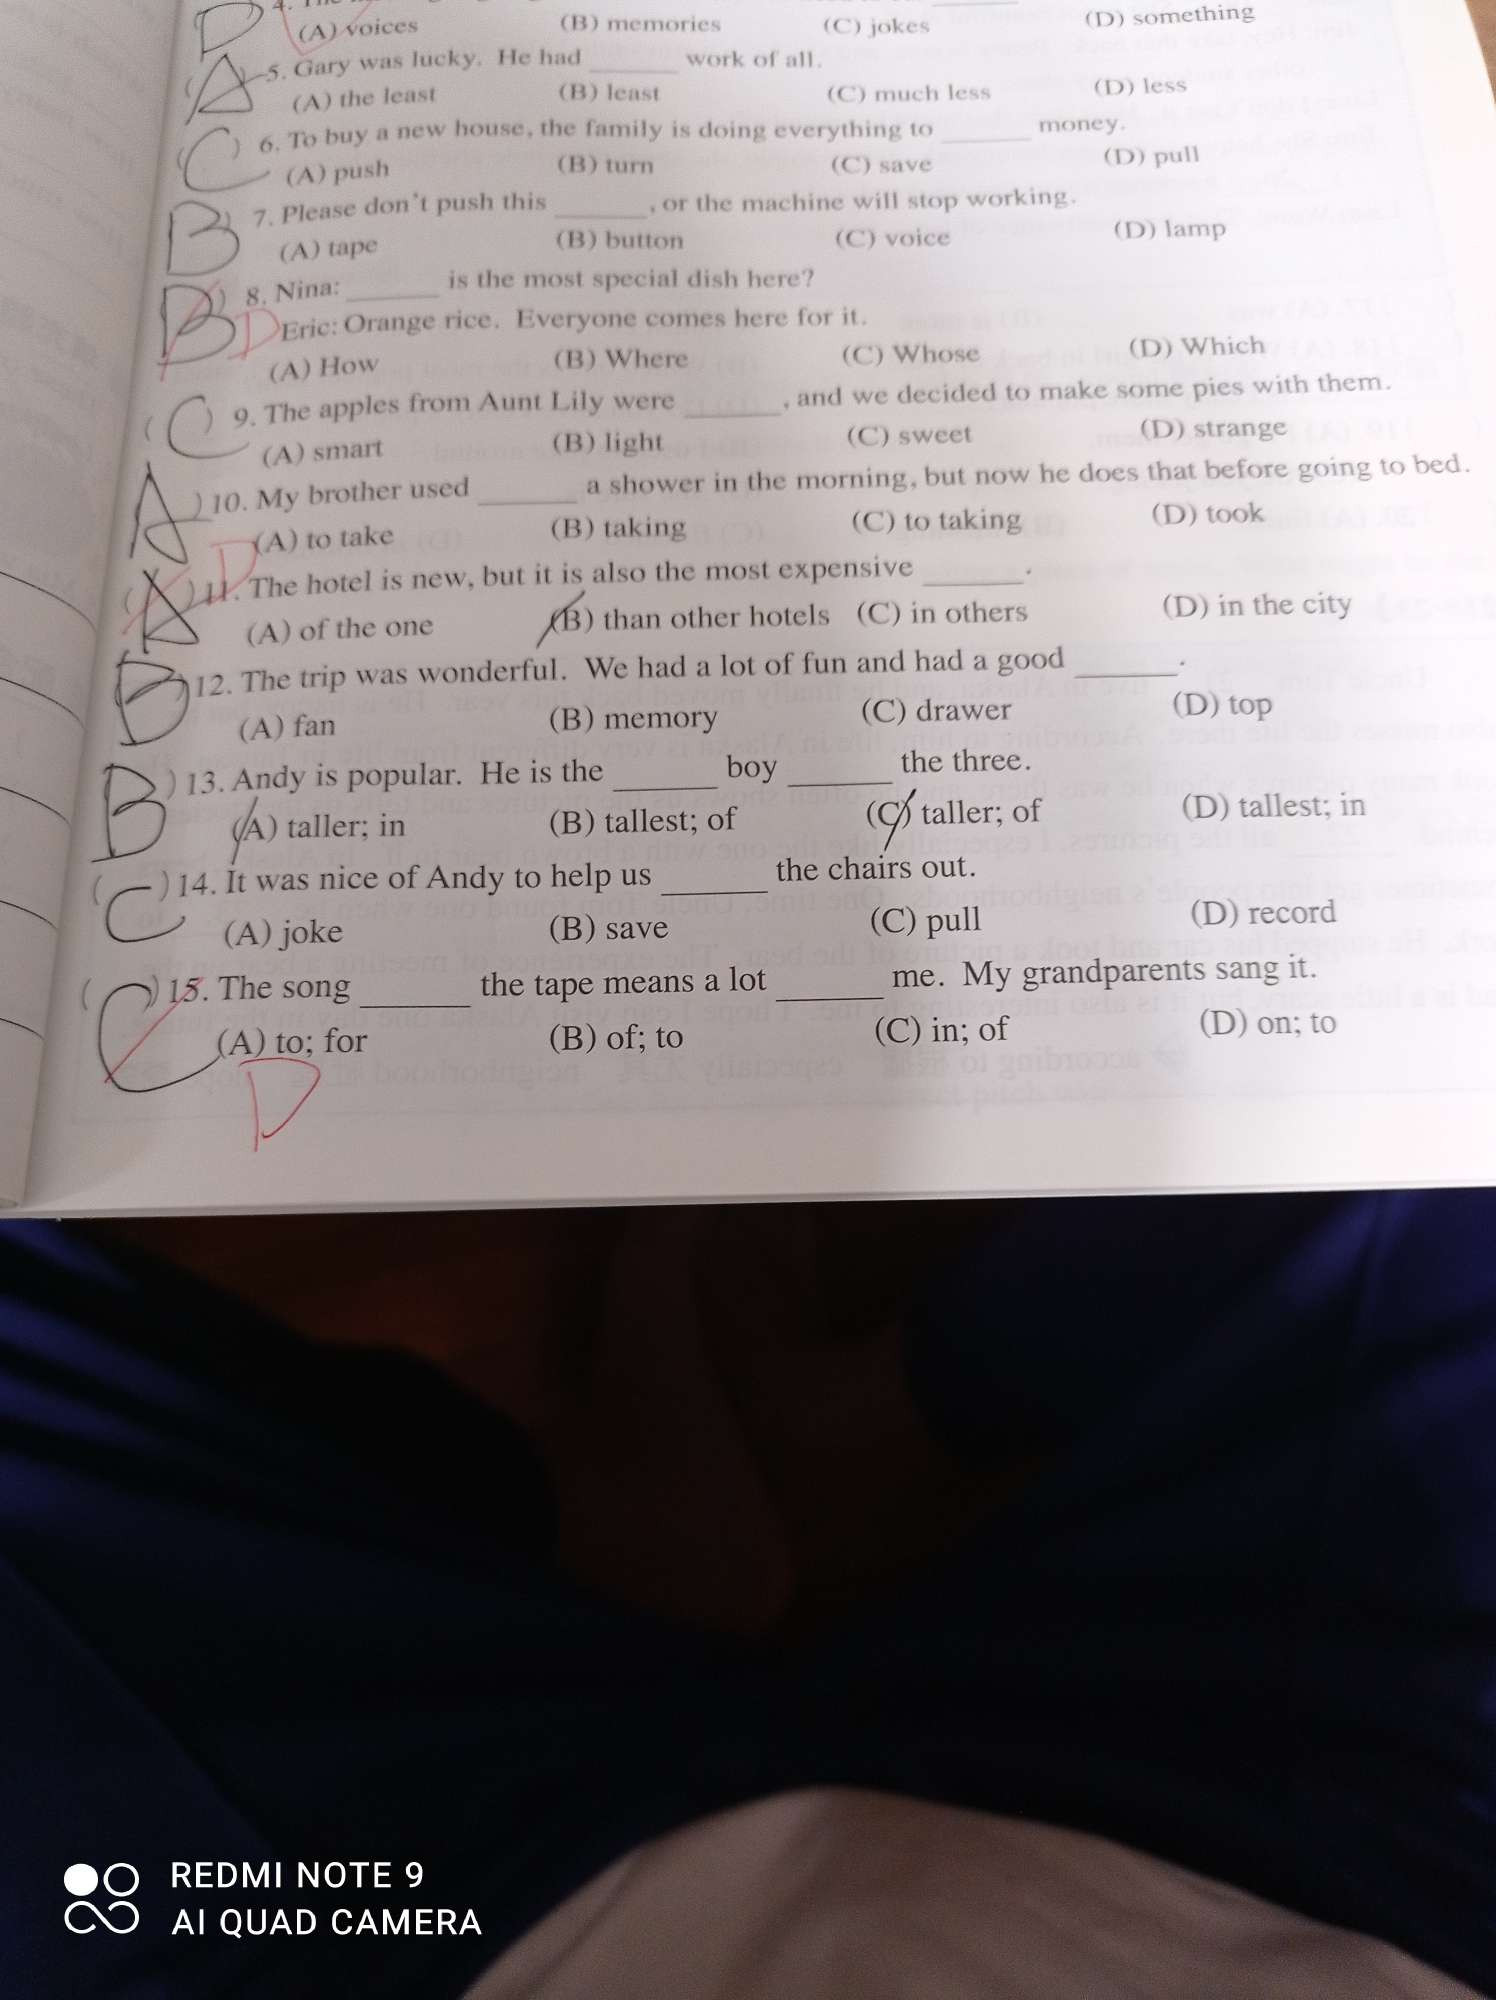 D
4.
(A) voices (B) memories (C) jokes (D) something
A
5. Gary was lucky. He had ______ work of all.
(A) the least (B) least (C) much less (D) less
( C ) 6. To buy a new house, the family is doing everything to ______ money.
(A) push (B) turn (C) save (D) pull
B ) 7. Please don't push this ______, or the machine will stop working.
(A) tape (B) button (C) voice (D) lamp
B ) 8. Nina: ______ is the most special dish here?
D Eric: Orange rice. Everyone comes here for it.
(A) How (B) Where (C) Whose (D) Which
( C ) 9. The apples from Aunt Lily were ______, and we decided to make some pies with them.
(A) smart (B) light (C) sweet (D) strange
A ) 10. My brother used ______ a shower in the morning, but now he does that before going to bed.
(A) to take (B) taking (C) to taking (D) took
D
( A ) 11. The hotel is new, but it is also the most expensive ______.
(A) of the one (B) than other hotels (C) in others (D) in the city
B ) 12. The trip was wonderful. We had a lot of fun and had a good ______.
(A) fan (B) memory (C) drawer (D) top
B ) 13. Andy is popular. He is the ______ boy ______ the three.
(A) taller; in (B) tallest; of (C) taller; of (D) tallest; in
( C ) 14. It was nice of Andy to help us ______ the chairs out.
(A) joke (B) save (C) pull (D) record
( C ) 15. The song ______ the tape means a lot ______ me. My grandparents sang it.
(A) to; for (B) of; to (C) in; of (D) on; to
D
REDMI NOTE 9
AI QUAD CAMERA